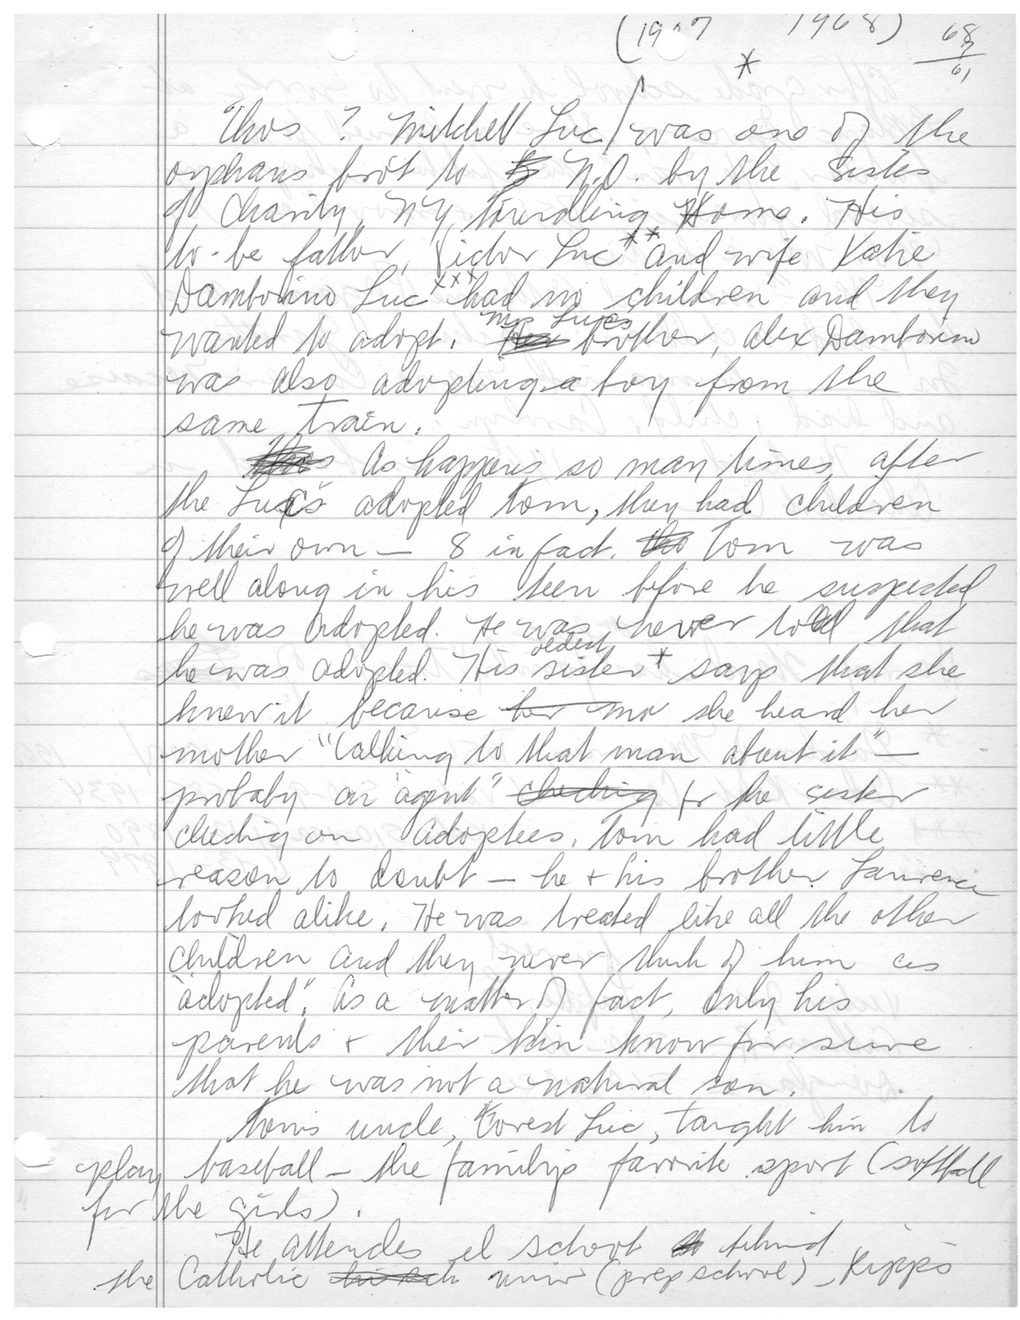 (1907 1968) 68
7
61
*
Thos ? Mitchell Luc / was one of the
orphans bro't to N.O. by the Sisters
of Charity NY Foundling Home. His
to-be father, Victor Luc ** and wife Katie
Damborino Luc *** had no children and they
wanted to adopt. Mrs Luc's brother, Alex Damborino
was also adopting a boy from the
same train.
As happens so many times, after
the Luc's adopted Tom, they had children
of their own — 8 in fact. Tom was
well along in his teen before he suspected
he was adopted. He was never told that
he was adopted. His oldest sister * says that she
knew it because her mo she heard her
mother "talking to that man about it" —
probaby an "agent" checking for the sister
checking on adoptees. Tom had little
reason to doubt — he + his brother Laurence
looked alike. He was treated like all the other
children and they never think of him as
"adopted". As a matter of fact, only his
parents + their kin know for sure
that he was not a natural son.
Tom's uncle, Forest Luc, taught him to
play baseball — the family's favorite sport (softball
for the girls).
He attendes el school behind
the Catholic univ (prep school), Ripp's